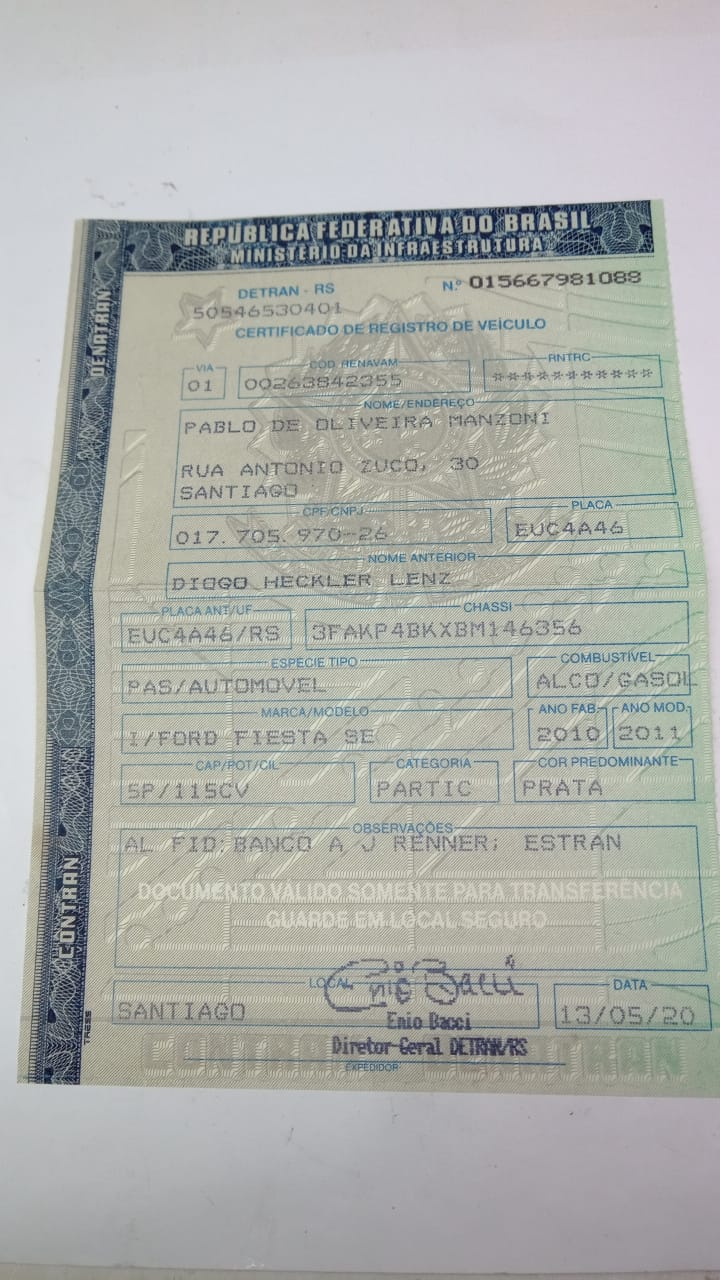 REPÚBLICA FEDERATIVA DO BRASIL
MINISTÉRIO DA INFRAESTRUTURA
DENATRAN
DETRAN - RS
N.º 015667981088
50546530401
CERTIFICADO DE REGISTRO DE VEÍCULO
VIA
CÓD. RENAVAM
RNTRC
01
00263842355
***********
NOME/ENDEREÇO
PABLO DE OLIVEIRA MANZONI
RUA ANTONIO ZUCO, 30
SANTIAGO
CPF/CNPJ
PLACA
017.705.970-26
EUC4A46
NOME ANTERIOR
DIOGO HECKLER LENZ
PLACA ANT/UF
CHASSI
EUC4A46/RS
3FAKP4BKXBM146356
ESPÉCIE TIPO
COMBUSTÍVEL
PAS/AUTOMOVEL
ALCO/GASOL
MARCA/MODELO
ANO FAB.
ANO MOD.
I/FORD FIESTA SE
2010
2011
CAP/POT/CIL
CATEGORIA
COR PREDOMINANTE
5P/115CV
PARTIC
PRATA
OBSERVAÇÕES
AL FID:BANCO A J RENNER; ESTRAN
DOCUMENTO VÁLIDO SOMENTE PARA TRANSFERÊNCIA
GUARDE EM LOCAL SEGURO
CONTRAN
LOCAL
DATA
SANTIAGO
13/05/20
Enio Bacci
Enio Bacci
Diretor-Geral DETRAN/RS
EXPEDIDOR
CONTRAN DENATRAN